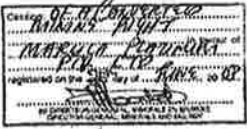 Cession OF A CONVERTED
MINING RIGHT
in favour of
MARULA PLATINUM
PTY LTD
registered on the day of JUNE 20 08
BY DIRECTOR
DIRECTOR GENERAL, MINERALS AND ENERGY